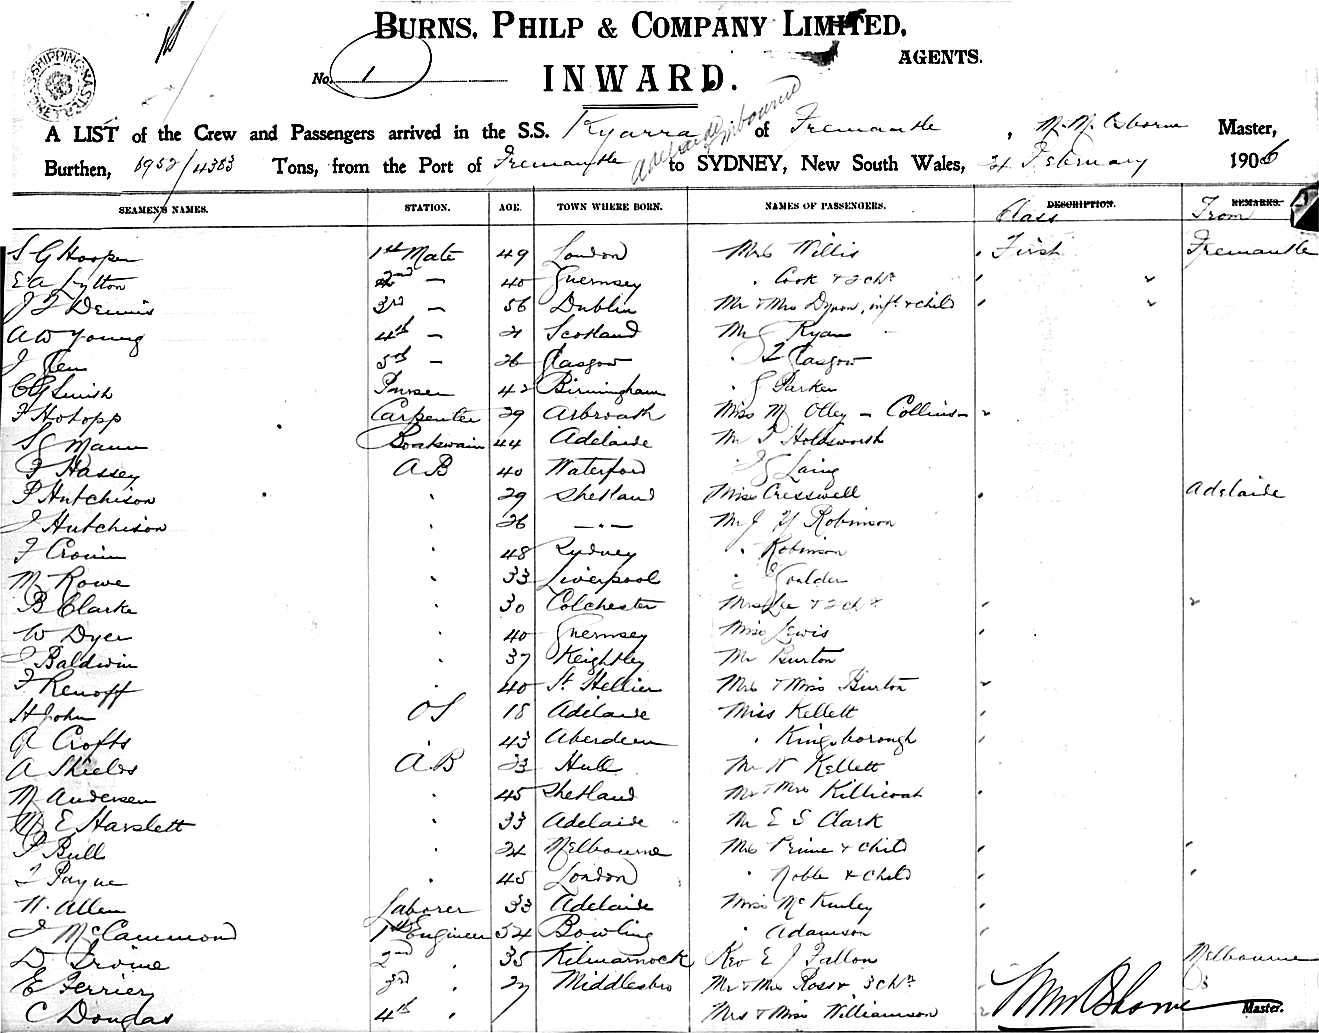 BURNS, PHILP & COMPANY LIMITED,
AGENTS.
No. 1
INWARD.
A LIST of the Crew and Passengers arrived in the S.S. Kyarra of Fremantle, Master,
Adelaide Melbourne
Burthen, 6952/4383 Tons, from the Port of Fremantle to SYDNEY, New South Wales, 24 February 1906
SEAMEN'S NAMES. STATION. AGE. TOWN WHERE BORN. NAMES OF PASSENGERS. DESCRIPTION. REMARKS.
Class From
S G Hooper 1st Mate 49 London Mrs Willis First Fremantle
E A Lytton 2nd — 40 Guernsey Cook & 2 chn
J F Dennis 3rd — 56 Dublin Mr & Mrs Dynon, inft & child
A W Young 4th — 21 Scotland Mr G Ryan
J Glen 5th — 26 Glasgow " Glasgow
C G Smith Purser 42 Birmingham " G Parker
F Hotopp Carpenter 29 Arbroath Miss M Olley - Collins
S G Mann Boatswain 44 Adelaide Mr P Holdsworth
F Hassey AB 40 Waterford J G Laing
P Hutchison " 29 Shetland Miss Cresswell Adelaide
J Hutchison " 26 — " — Mr J Y Robinson
F Cronin " 48 Sydney " Robinson
M Rowe " 33 Liverpool " Goulder
B Clarke " 30 Colchester Mrs Lee & 2 chn
W Dyer " 40 Guernsey Miss Lewis
J Baldwin " 37 Keighley Mr Burton
F Renoff " 40 St. Hellier Mrs & Miss Burton
H John OS 18 Adelaide Miss Kellett
A Crofts " 43 Aberdeen " Kingsborough
A Shields AB 23 Hull Mr W Kellett
M Andersen " 45 Shetland Mr & Mrs Killicoat
M E Harslett " 33 Adelaide Mr E S Clark
P Bull " 24 Melbourne Mrs Prime & child
J Payne " 45 London " Noble & child
W. Allen Laborer 33 Adelaide Miss McKinley
J McCammond 1st Engineer 54 Bowling " Adamson
D Irvine 2nd " 35 Kilmarnock Rev E J Fallon Melbourne
E Ferrier 3rd " 27 Middlesbro Mr & Mrs Ross & 3 chn
C Douglas 4th " Mrs & Miss Williamson Master.